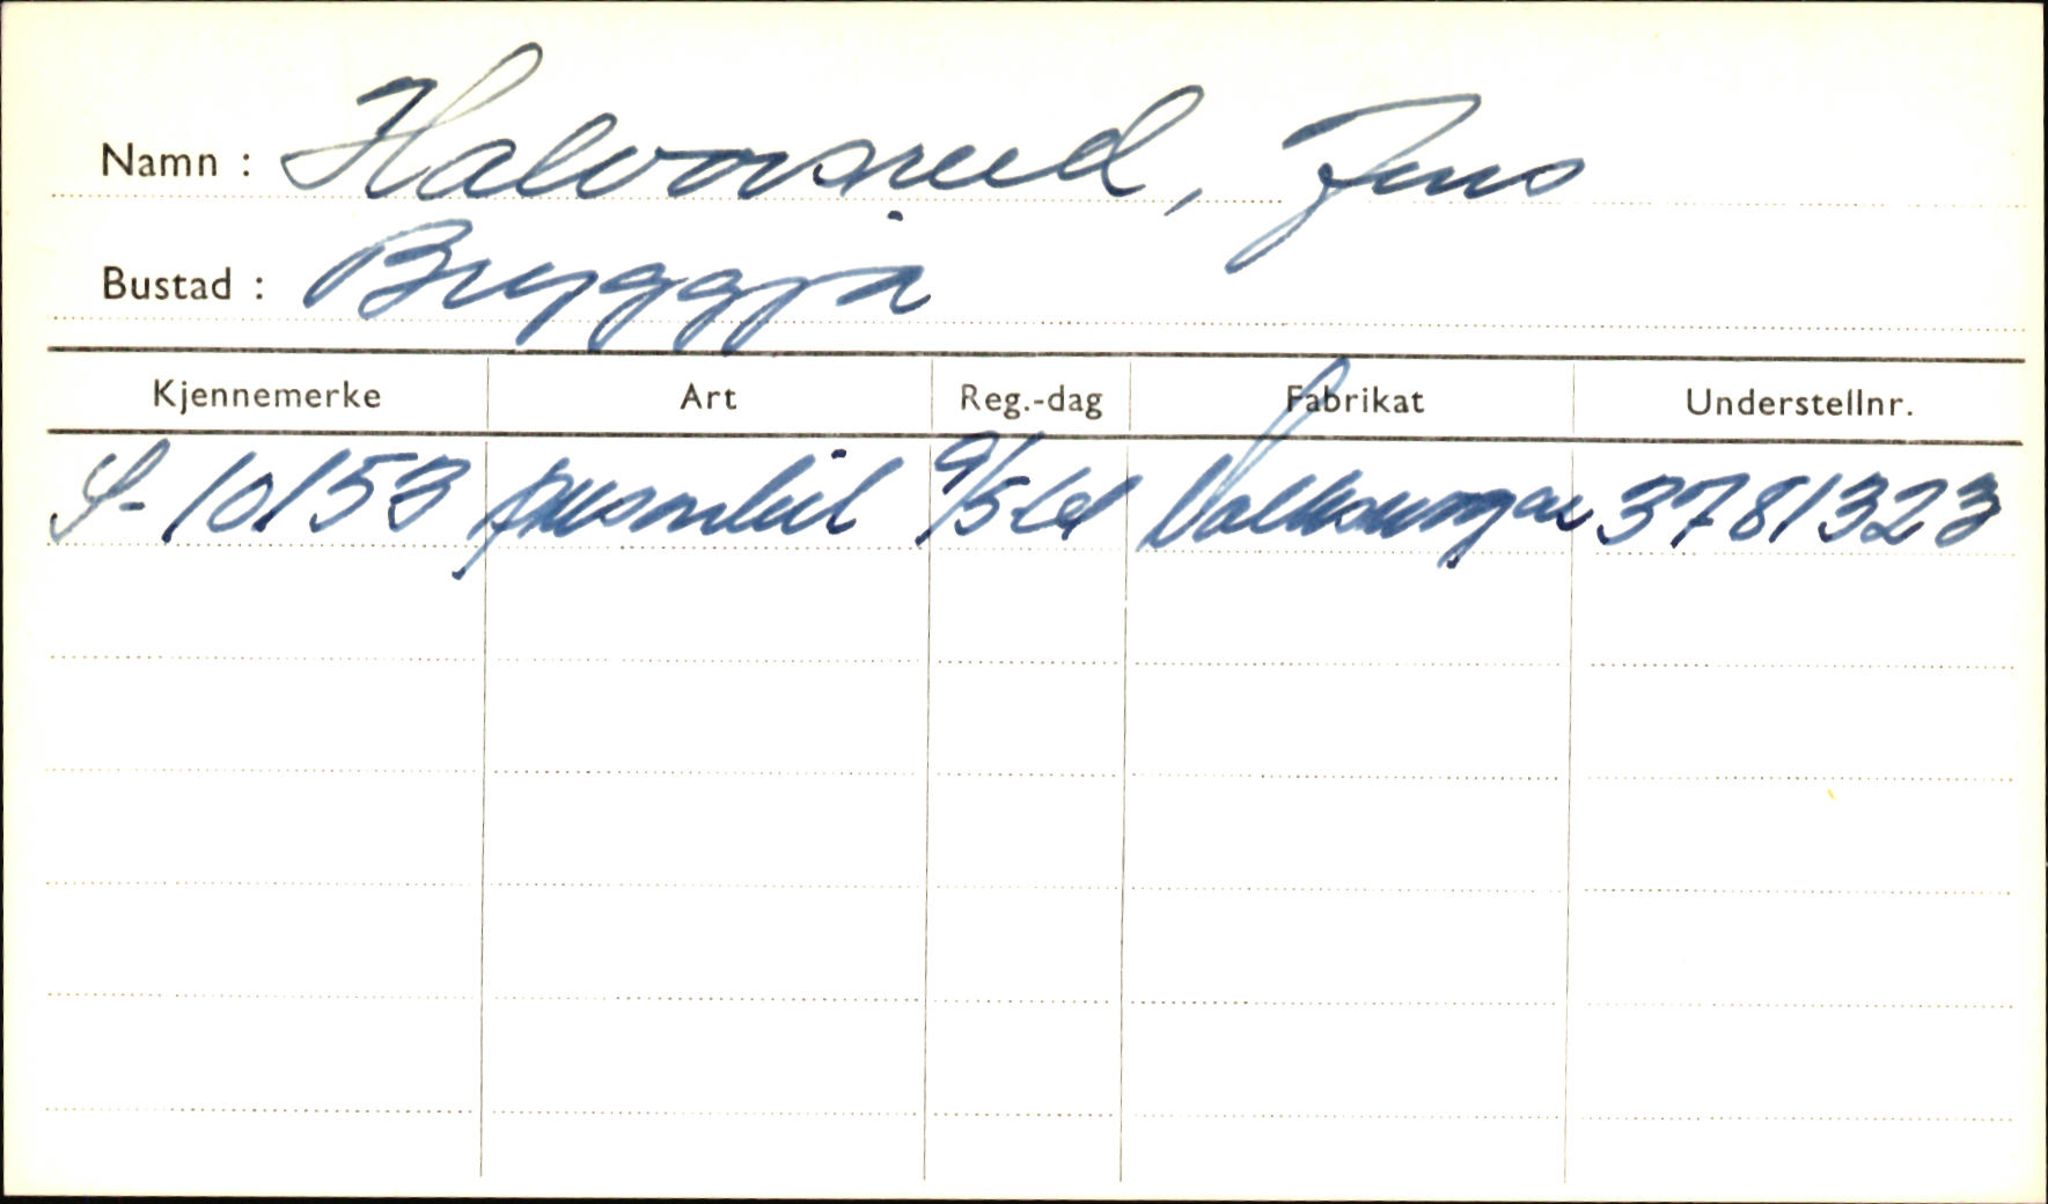 Namn : Halvorsrud, Jens
Bustad : Bryggja
Kjennemerke Art Reg.-dag Fabrikat Understellnr.
S-10153 personbil 9/5 61 Volkswagen 3781323